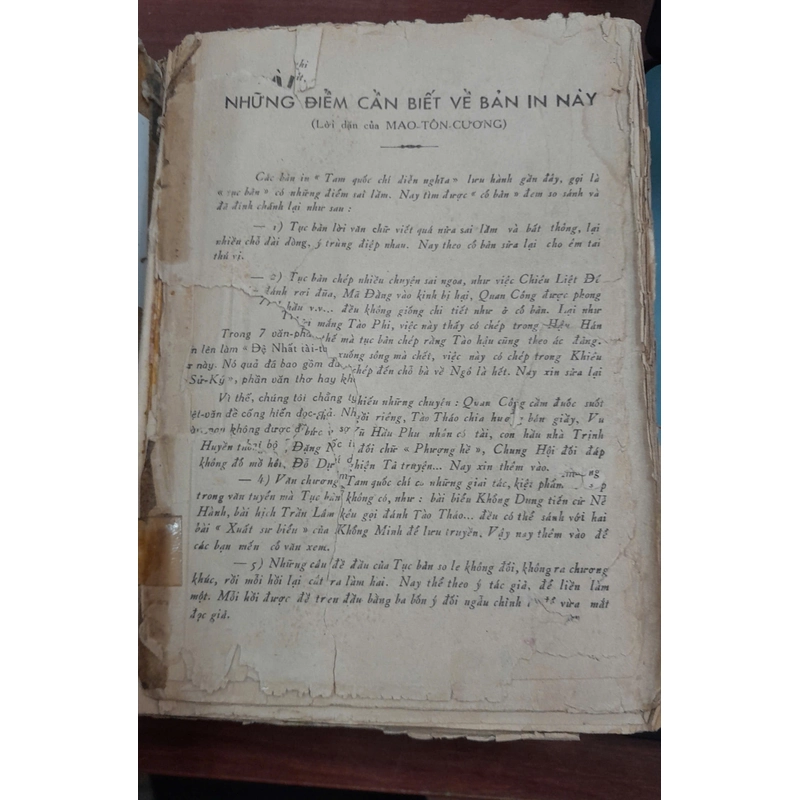 NHỮNG ĐIỀM CẦN BIẾT VỀ BẢN IN NÀY
(Lời dặn của MAO-TÔN-CƯƠNG)
Các bản in « Tam quốc chí diễn nghĩa » lưu hành gần đây, gọi là
« tục bản » có những điểm sai lầm. Nay tìm được « cổ bản » đem so sánh và
đã đính chánh lại như sau :
— 1) Tục bản lời văn chữ viết quá nửa sai lầm và bất thông, lại
nhiều chỗ dài dòng, ý trùng điệp nhau. Nay theo cổ bản sửa lại cho êm tai
thú vị.
— 2) Tục bản chép nhiều chuyện sai ngoa, như việc Chiêu Liệt Đế
đánh rơi đũa, Mã Đằng vào kinh bị hại, Quan Công được phong
hầu v.v... đều không giống chi tiết như ở cổ bản. Lại như
mắng Tào Phi, việc này thấy có chép trong Hậu Hán
Trong 7 văn-phẩ
thế mà tục bản chép rằng Tào hậu cũng theo ác đảng.
n lên làm "Đệ Nhất tài-t
xuống sông mà chết, việc này có chép trong Khiêu
này. Nó quả đã bao gồm đ
chép đến chỗ bà về Ngô là hết. Nay xin sửa lại
Sử-Ký", phần văn thơ hay kh
Vì thế, chúng tôi chẳng
thiếu những chuyện : Quan Công cầm đuốc suốt
ệt-văn để cống hiến độc-
người riêng, Tào Tháo chia hư bán giầy, Vu
không được đ
Hầu Phu nhân có tài, con hầu nhà Trịnh
Huyền đối chữ « Phượng hề », Chung Hội đối đáp
không đổ mồ hôi, Đỗ Dự ghiện Tả truyện... Nay xin thêm vào.
— 4) Văn chương Tam quốc chí có những giai tác, kiệt phẩm
trong văn tuyển mà Tục bản không có, như : bài biểu Khổng Dung tiến cử Nễ
Hành, bài hịch Trần Lâm kêu gọi đánh Tào Tháo... đều có thể sánh với hai
bài « Xuất sư biểu » của Khổng Minh để lưu truyền. Vậy nay thêm vào để
các bạn mến cổ văn xem.
— 5) Những câu đề đầu của Tục bản so le không đối, không ra chương
khúc, rồi mỗi hồi lại cắt ra làm hai. Nay thể theo ý tác giả, để liền làm
một. Mỗi hồi được đề trên đầu bằng ba bốn ý đối ngẫu chỉnh vừa mắt
đọc giả.